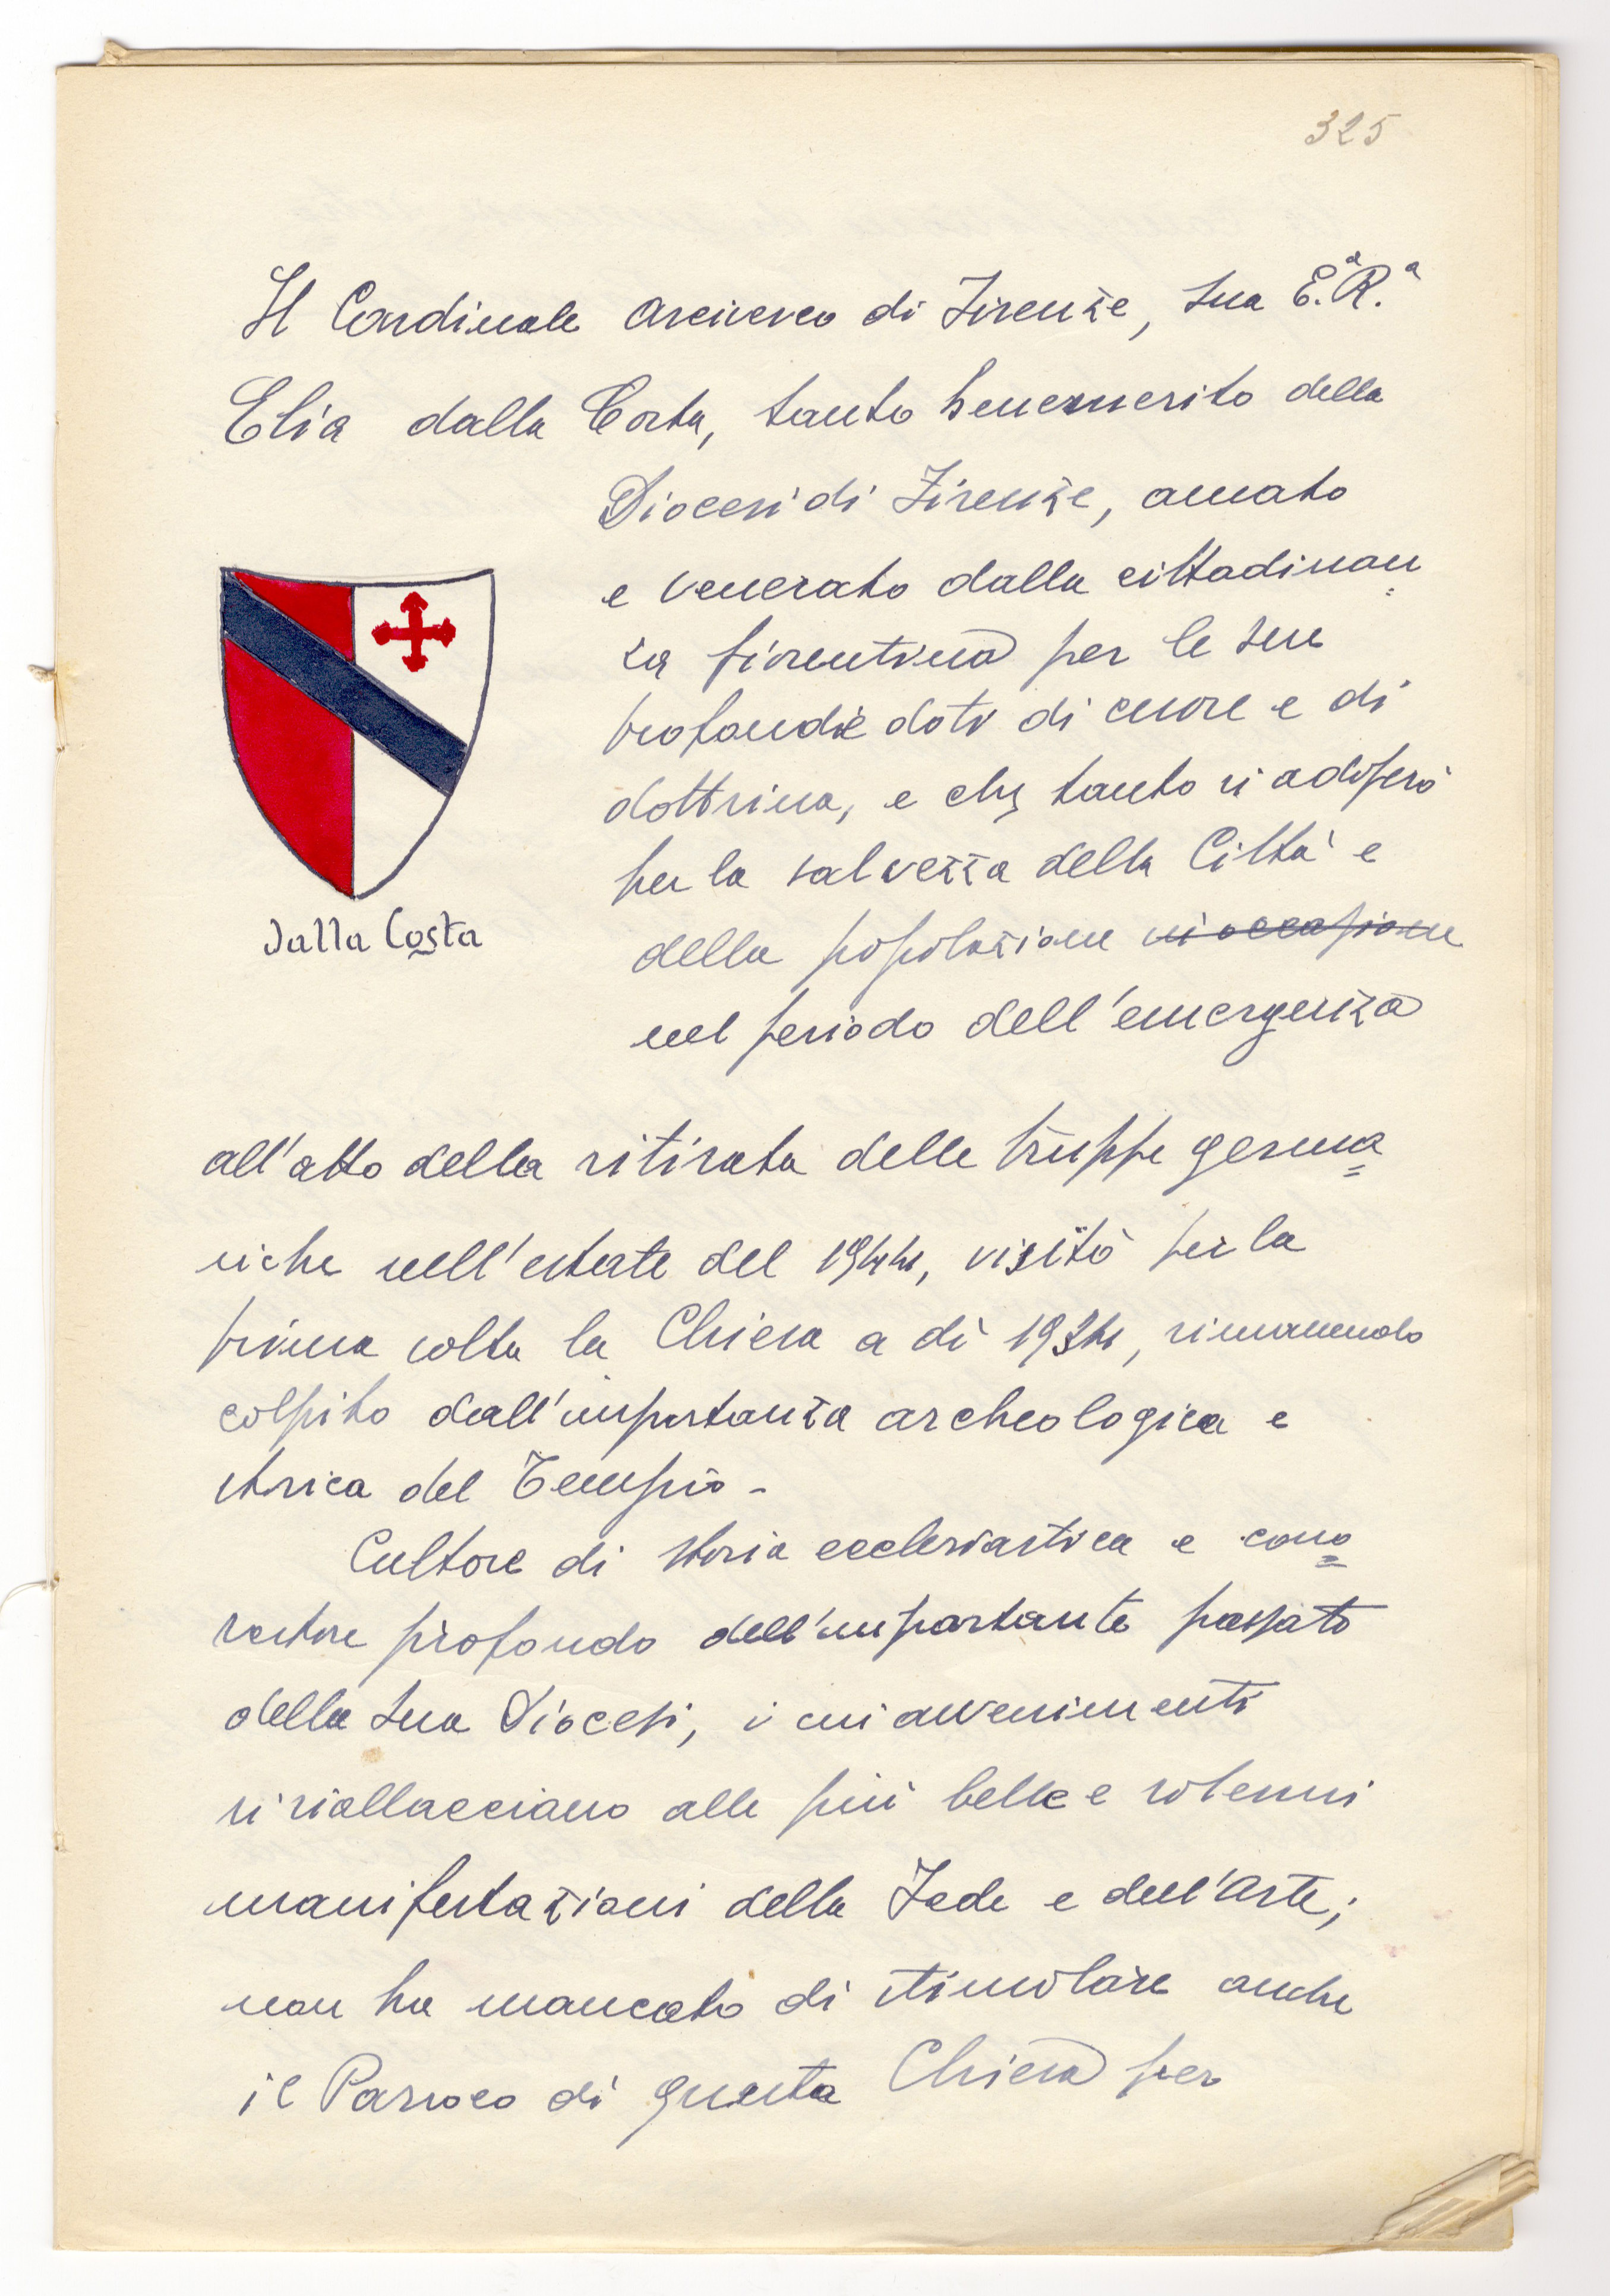 325
Il Cardinale Arcivesco di Firenze, Sua E.ª R.ª
Elia dalla Costa, tanto benemerito della
Diocesi di Firenze, amato
e venerato dalla cittadinan
za fiorentina per le sue
profonde doti di cuore e di
dottrina, e che tanto si adoperò
per la salvezza della Città e
della popolazione in occasione
nel periodo dell'emergenza
dalla Costa
all'atto della ritirata delle truppe germa=
niche nell'estate del 1944, visitò per la
prima volta la Chiesa a dì 1934, rimanendo
colpito dall'importanza archeologica e
storica del Tempio -
Cultore di storia ecclesiastica e cono=
scitore profondo dell'importante passato
della sua Diocesi, i cui avvenimenti
si riallacciano alle più belle e solenni
manifestazioni della Fede e dell'Arte;
non ha mancato di stimolare anche
il Parroco di questa Chiesa per